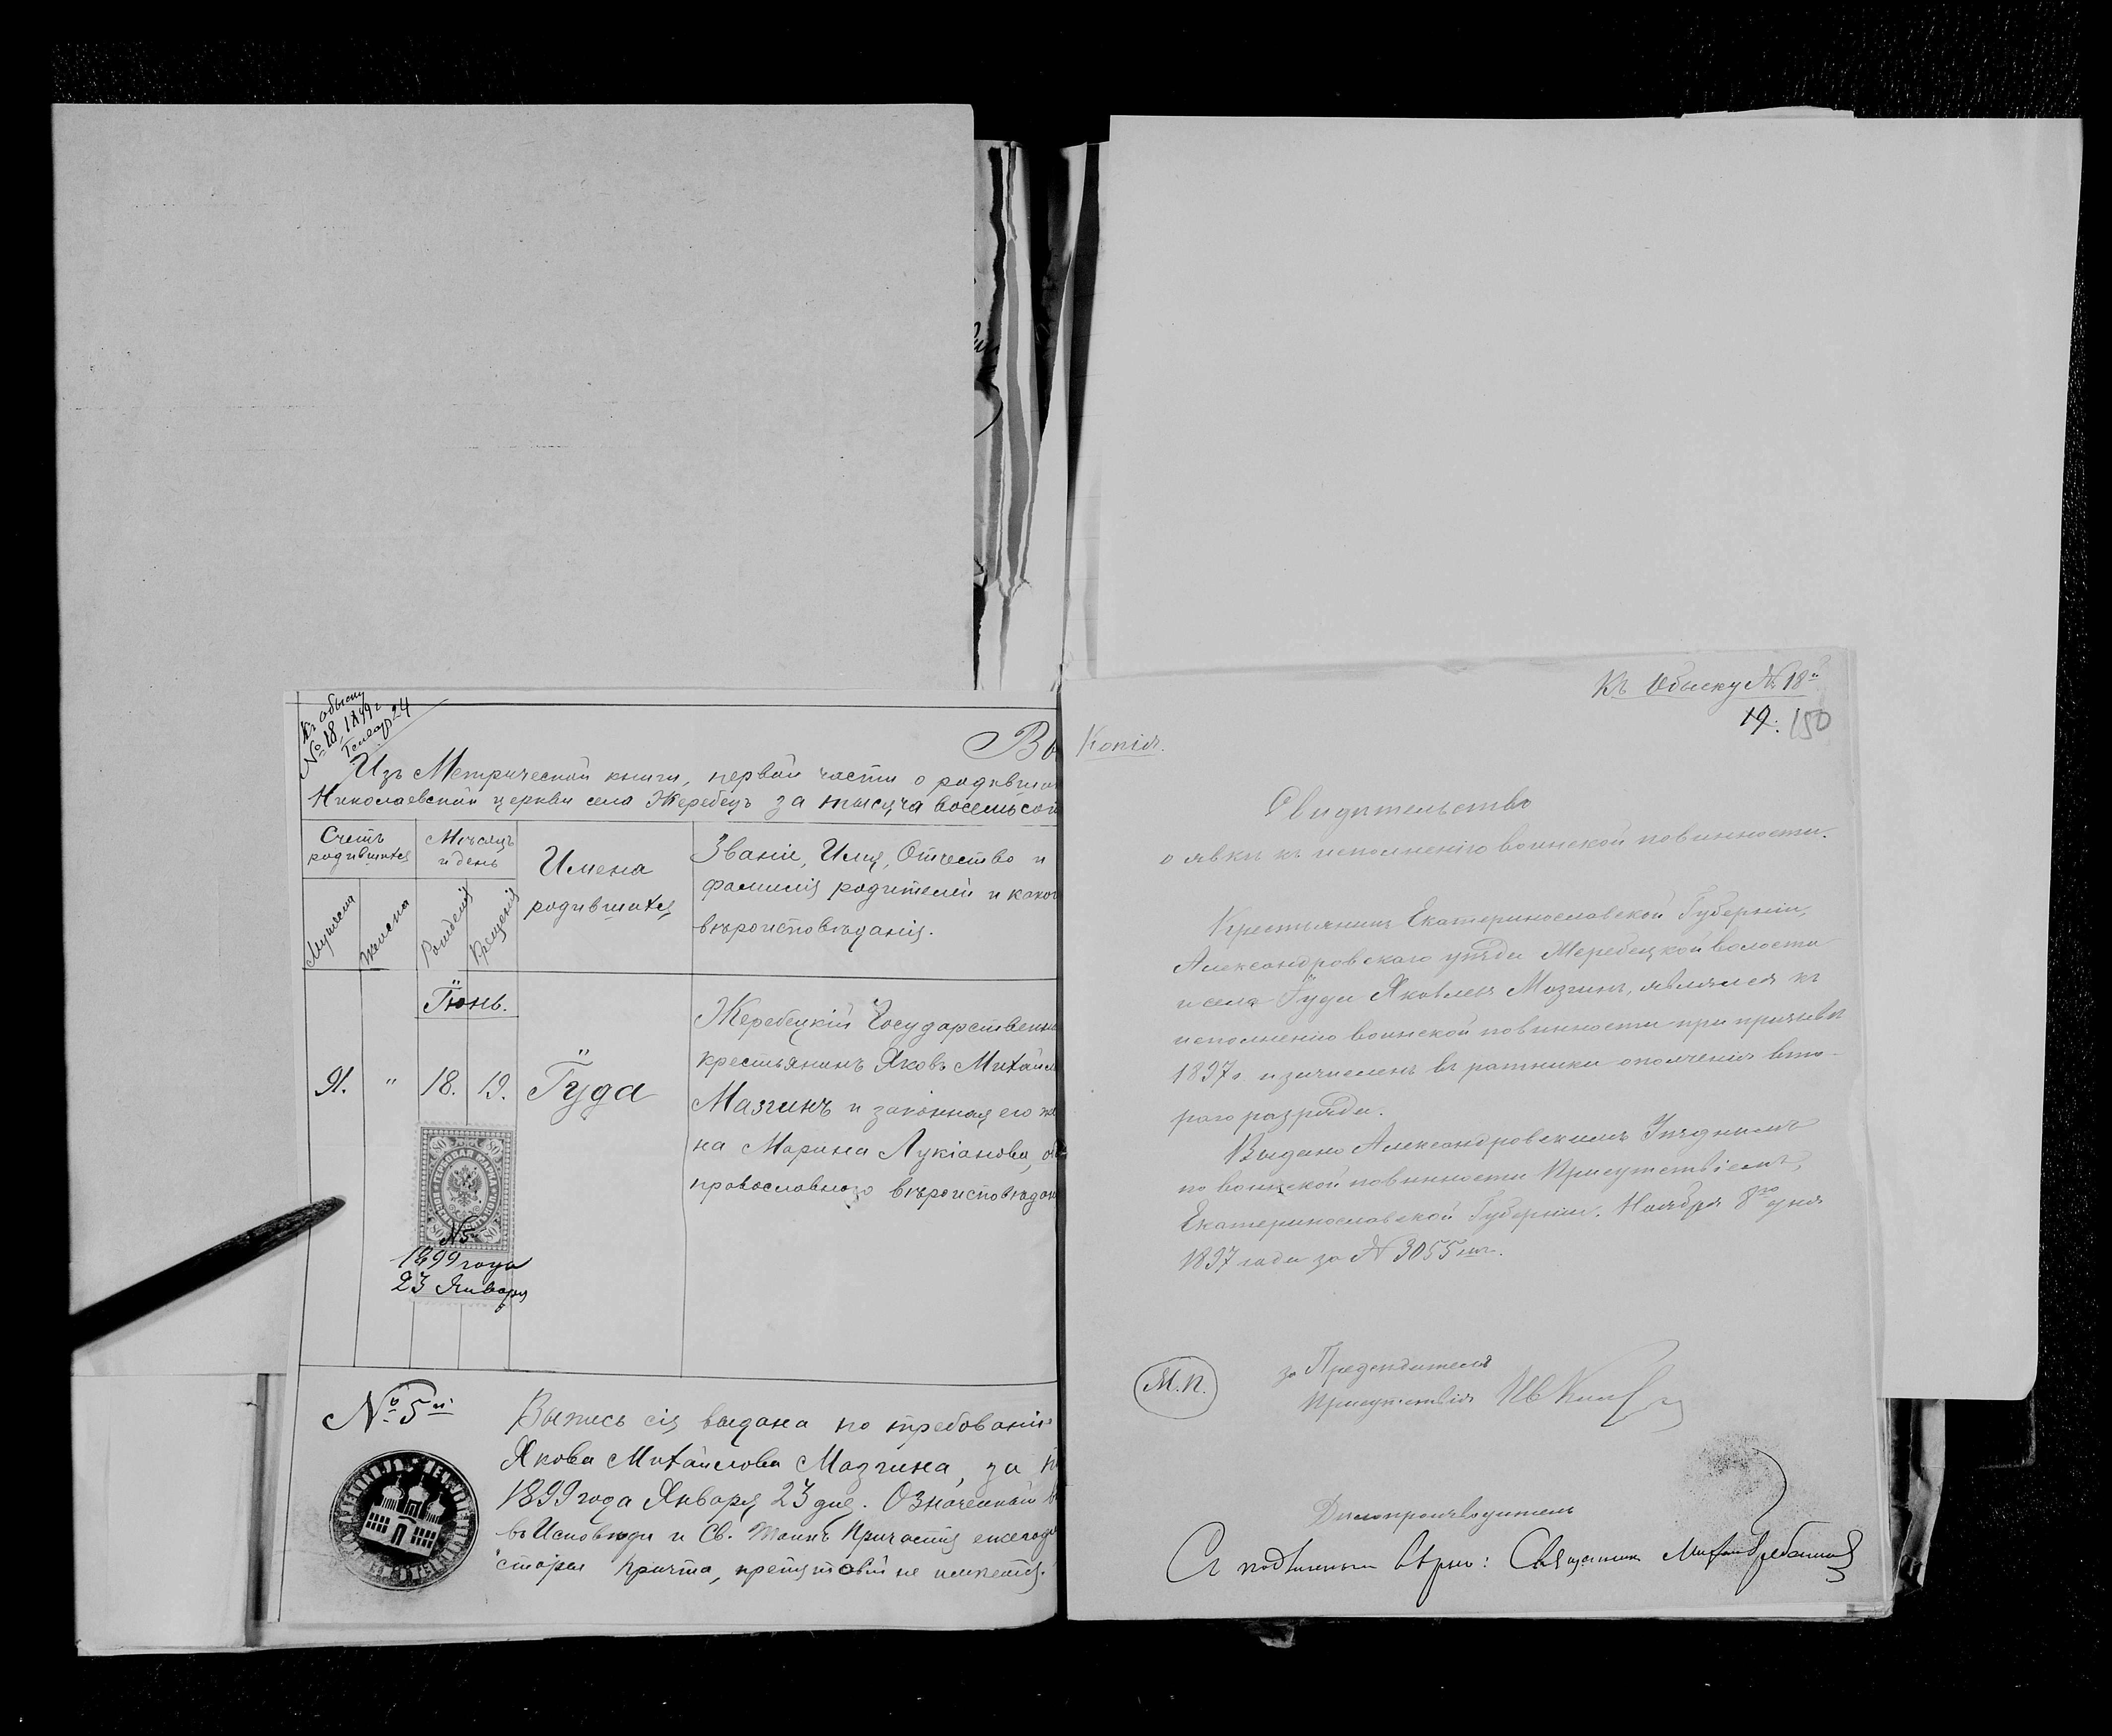 Къ обыску
№ 18, 1899 г
Генвар 24
Вы
Изъ Метрической книги, первой части о родивших
Николаевской церкви села Жеребецъ за тысяча восемьсот
Счетъ родившихся
Мѣсяцъ и день
Имена родившихся
Званіе, Имя, Отчество и
фамилія родителей и какого
вѣроисповѣданія.
Мужеска
Женска
Рожденія
Крещенія
Іюнь.
Я. " 18. 19. Іуда
Жеребецкій Государственны
крестьянинъ Яковъ Михайл
Мазгинъ и законная его же
на Марина Лукіанова, об
православнаго вѣроисповѣдан
80 80
ГЕРБОВАЯ МАРКА
80 80
№ 5
1899 года
23 Января
№ 5й
Выпись сія выдана по требованію
Якова Михайлова Мазгина, за
1899 года Января 23 дня. Означенный
въ Исповѣди и Св. Таинъ Причастія ежегод
стороны причта, препятствій не имѣется.
Къ Обыску № 18й
19. 150
Копія.
Свидѣтельство
о явкѣ къ исполненію воинской повинности.
Крестьянинъ Екатеринославской Губерніи,
Александровскаго уѣзда Жеребецкой волости
и села Іуда Яковлевъ Мазгинъ, являлся къ
исполненію воинской повинности при призывѣ
1897 г. и зачисленъ въ ратники ополченія вто-
раго разряда.
Выдано Александровскимъ Уѣзднымъ
по воинской повинности Присутствіемъ,
Екатеринославской Губерніи. Ноября 8го дня
1897 года за № 3055мъ.
М.П.
за Предсѣдателя
Присутствія
Дѣлопроизводитель
Съ подлиннымъ вѣрно: Священник Михаил